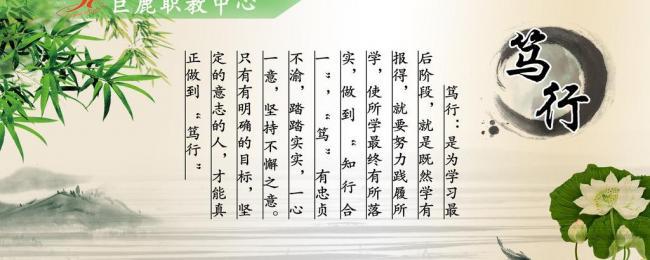 巨鹿职教中心
笃行
笃行：是为学习最
后阶段，就是既然学有
报得，就要努力践履所
学，使所学最终有所落
实，做到“知行合
一”，“笃”有忠贞
不渝，踏踏实实，一心
一意，坚持不懈之意。
只有有明确的目标，坚
定的意志的人，才能真
正做到“笃行”